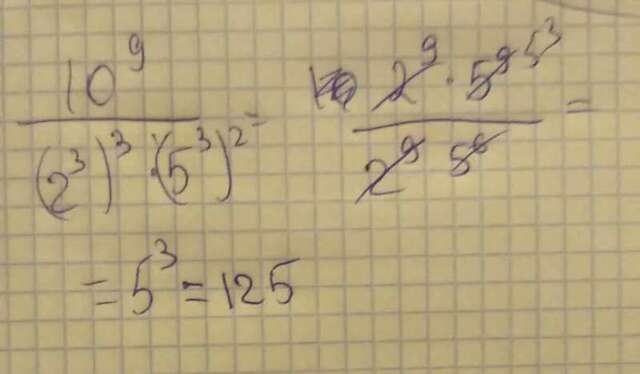 10^9 / ((2^3)^3 · (5^3)^2) = (2^9 · 5^9 5^3) / (2^9 5^6) =
= 5^3 = 125